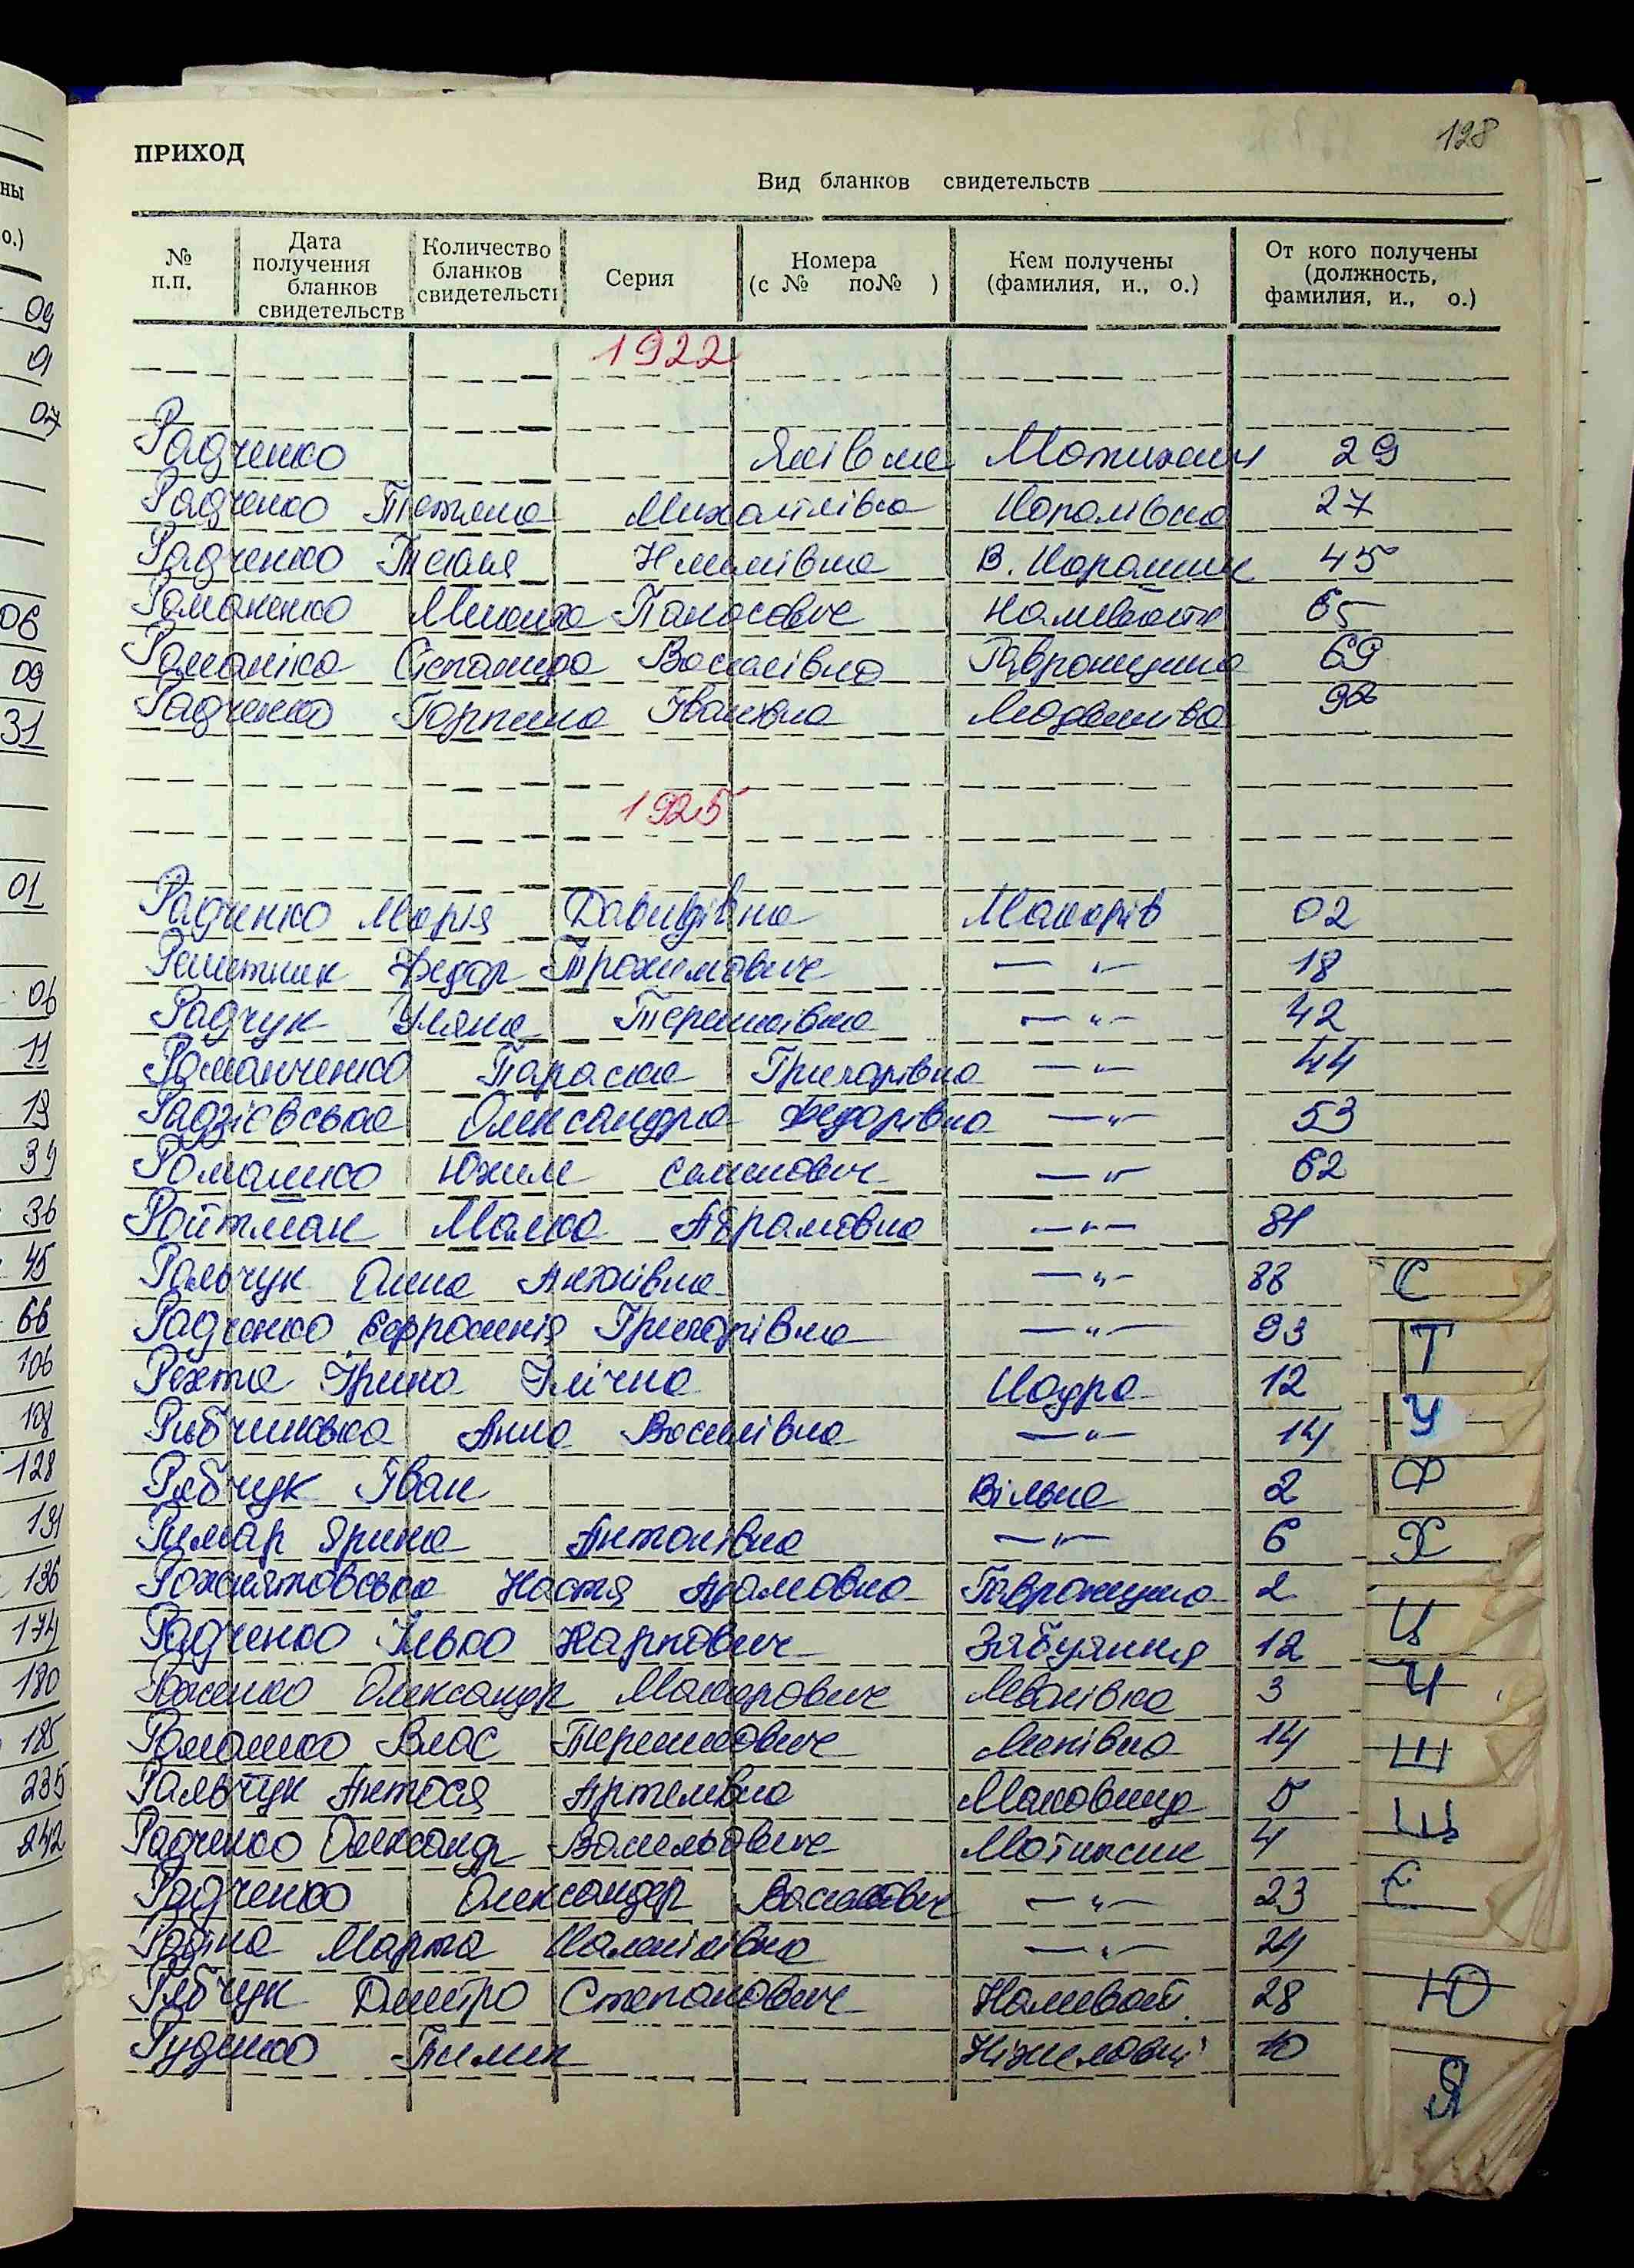 128
ПРИХОД
Вид бланков свидетельств
№ п.п.
Дата получения бланков свидетельств
Количество бланков свидетельств
Серия
Номера (с № по№ )
Кем получены (фамилия, и., о.)
От кого получены (должность, фамилия, и., о.)
1922
Радченко Яківна Мотижин 29
Радченко Тетяна Михайлівна Королівка 27
Радченко В. Карашин 45
Романенко Микита Панасович 65
Романіка Степанида Василівна Гавронщина 69
Радченко Горпина Іванівна
1925
Радченко Марія Давидівна Макарів 02
Решетник Федор Трохимович — „ — 18
Радчук Уляна Терешківна — „ — 42
Романченко Параска Григорівна — „ — 44
Радзієвська Олександра Федорівна — „ — 53
Романко Юхим Семенович — „ — 62
Ройтман Малка Абрамовна — „ — 81
Ральчук Анна — „ — 88
Радченко Єфросинія Григорівна — „ — 93
Рехта Ірина Ілічна Кодра 12
Анна Василівна — „ — 14
Рябчук Іван Вільне 2
Римар Ярина Антонівна — „ — 6
Рожнятовська Настя Адамовна Гавронщина 2
Радченко Ілько Карпович Забуяння 12
Олександр Макарович 3
Романко Влас Терешкович Липівка 14
Ральчук Антося Артемівна Маковище 5
Радченко Олександр Мотижин 4
Радченко Олександер Василович — „ — 23
Марта — „ — 24
Рябчук Дмитро Степанович Наливайк. 28
Руденко Ніжиловичі 10
С
Т
У
Ф
Х
Ц
Ч
Ш
Щ
Є
Ю
Я
09
01
07
06
09
31
01
06
11
19
34
36
45
66
106
108
128
131
136
174
180
185
235
242